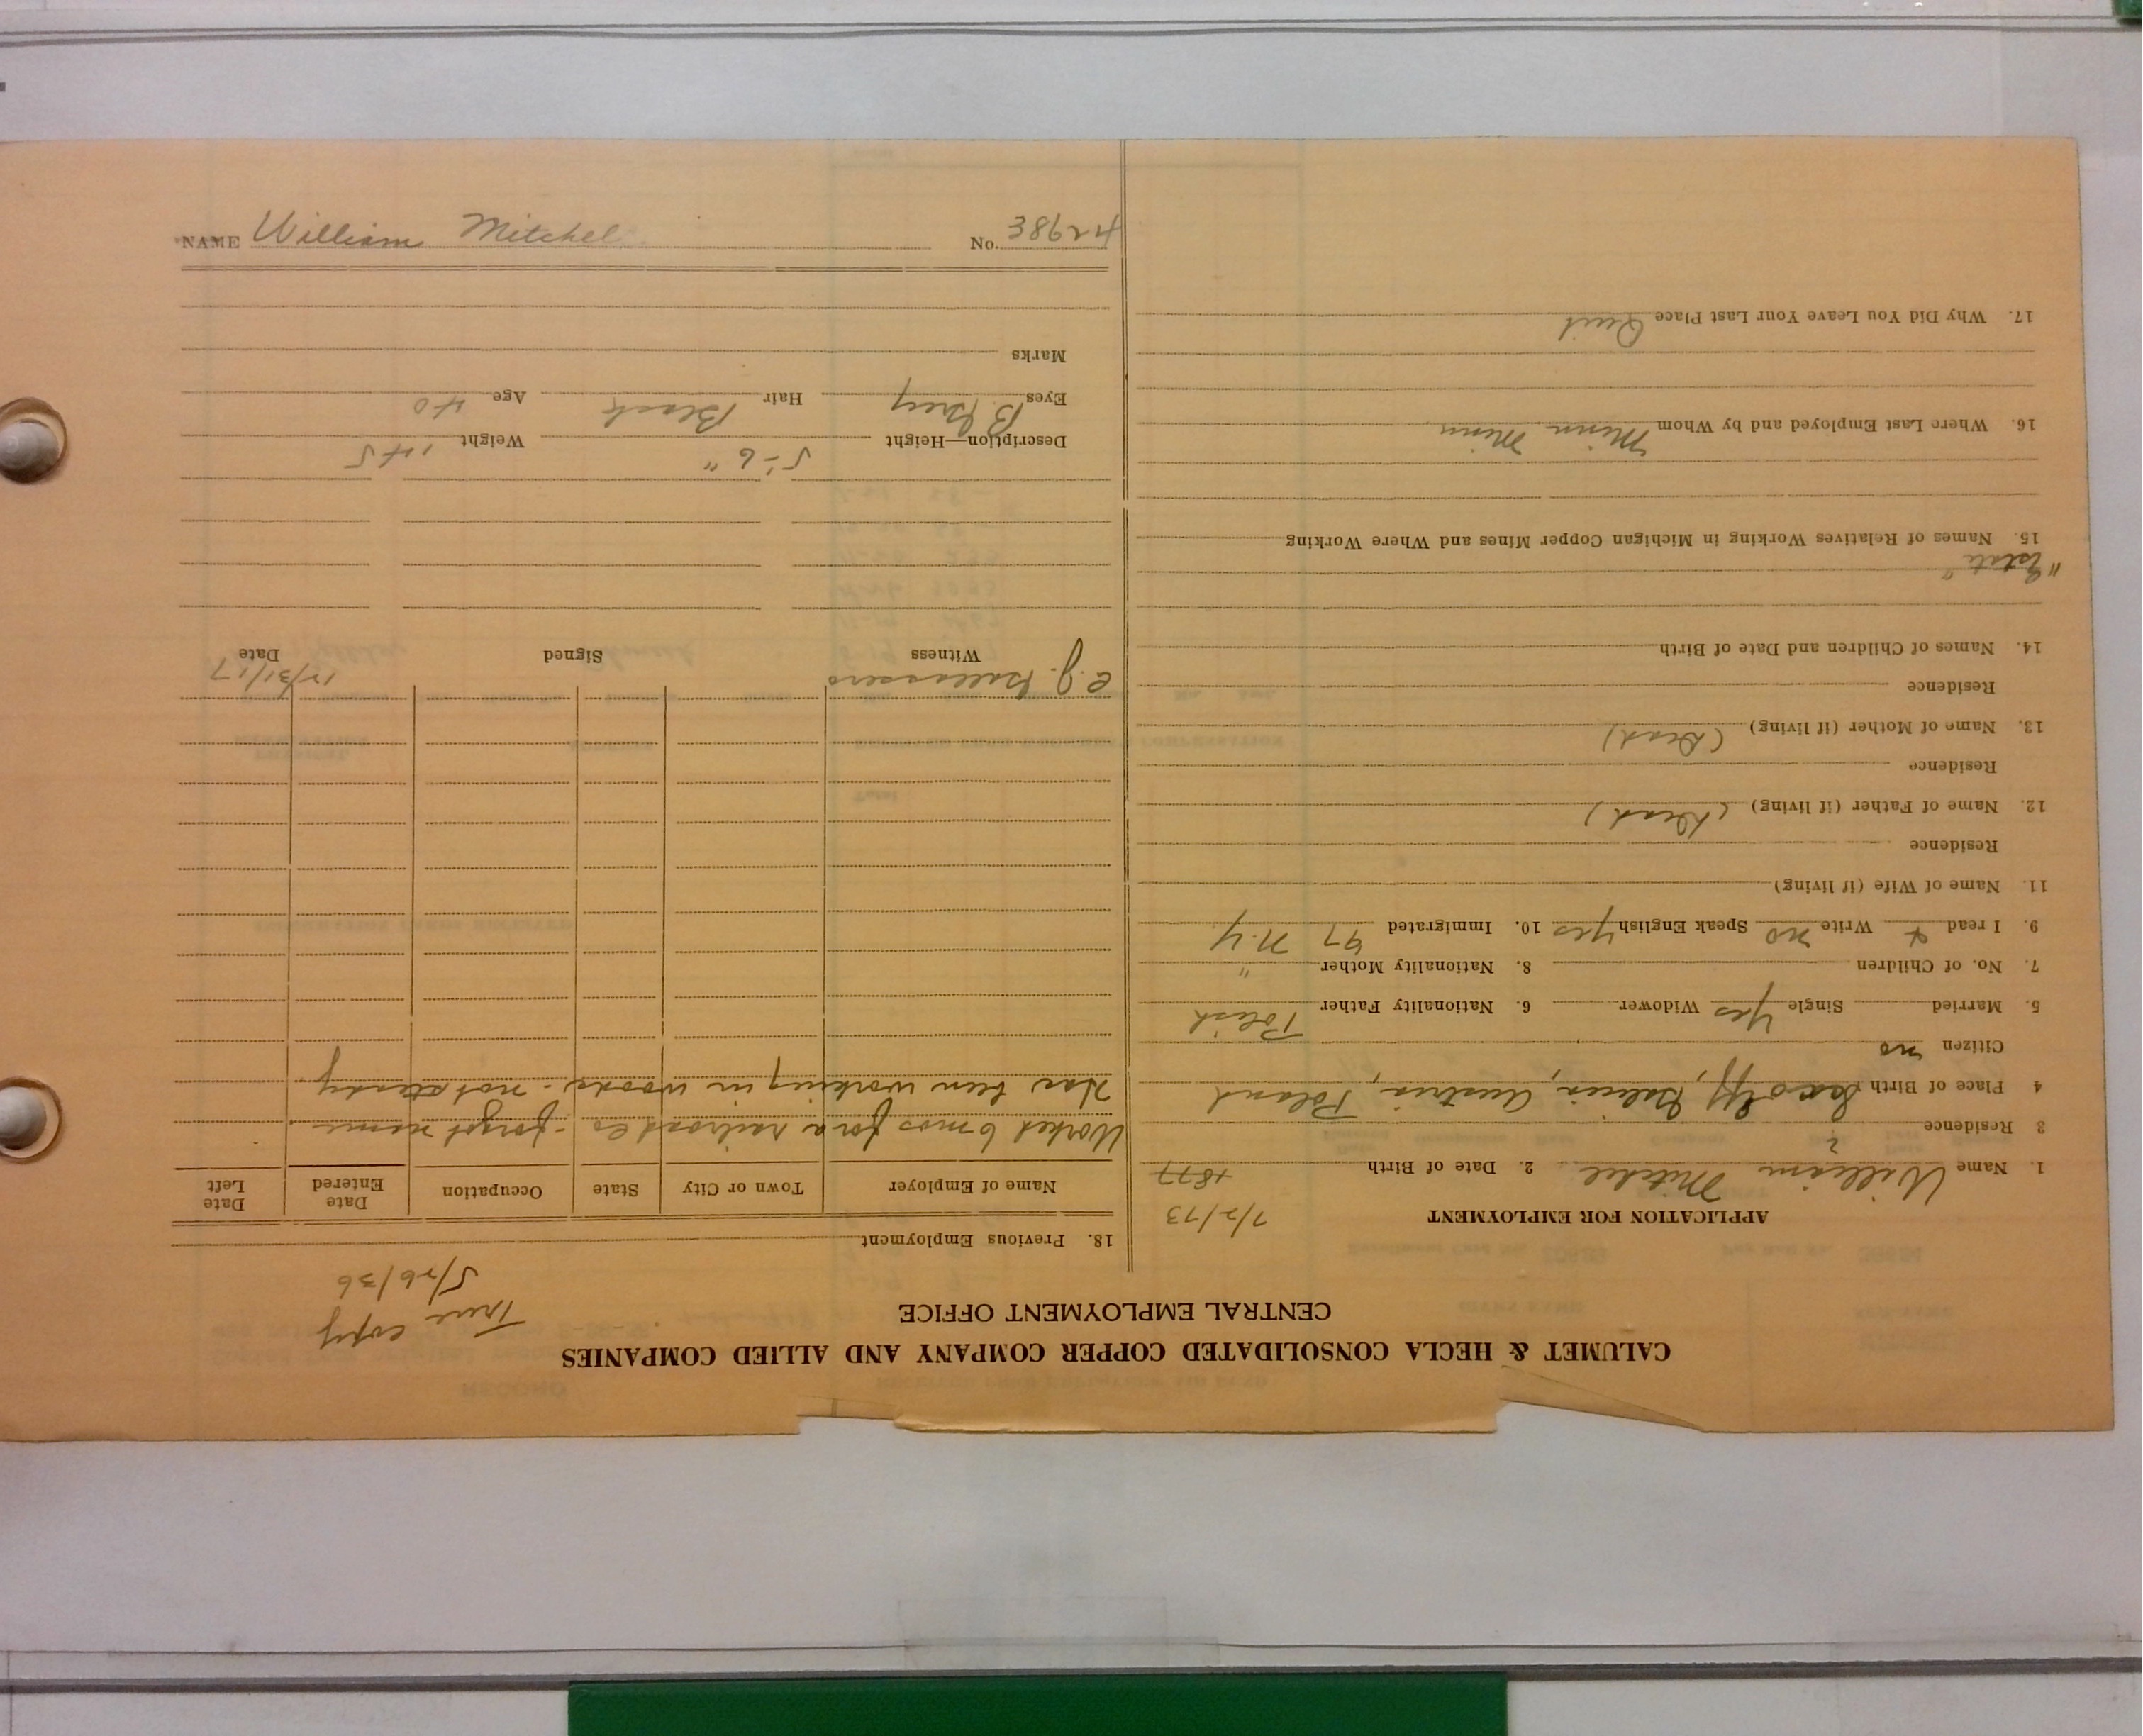 CALUMET & HECLA CONSOLIDATED COPPER COMPANY AND ALLIED COMPANIES
CENTRAL EMPLOYMENT OFFICE
True copy
5/26/36
APPLICATION FOR EMPLOYMENT
7/2/73
1. Name William Mitchel 2. Date of Birth 1877
3 Residence ?
4 Place of Birth Galicia, Austria, Poland
Citizen no
5. Married Single Yes Widower 6. Nationality Father Polish
7. No. of Children 8. Nationality Mother "
9. I read Write no Speak English Yes 10. Immigrated 97 N.Y.
11. Name of Wife (if living)
Residence
12. Name of Father (if living) (Dead)
Residence
13. Name of Mother (if living) (Dead)
Residence
14. Names of Children and Date of Birth
"Estate"
15. Names of Relatives Working in Michigan Copper Mines and Where Working
16. Where Last Employed and by Whom Minn Minn
17. Why Did You Leave Your Last Place Quit
18. Previous Employment
Name of Employer Town or City State Occupation Date Entered Date Left
Worked 6 mos for a railroad Co - forgot name
Has been working in woods - not steady
E.J. 12/31/17
Witness Signed Date
Description—Height 5'-6" Weight 145
Eyes B. Grey Hair Black Age 40
Marks
NAME William Mitchel No. 38624